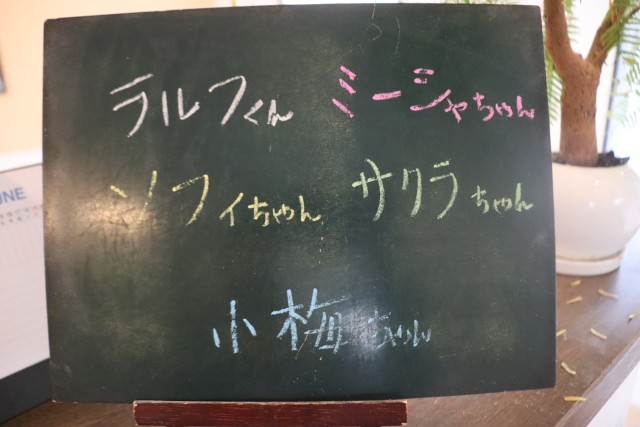 ラルフくん ミーシャちゃん
ソフィちゃん サクラちゃん
小梅ちゃん
UNE